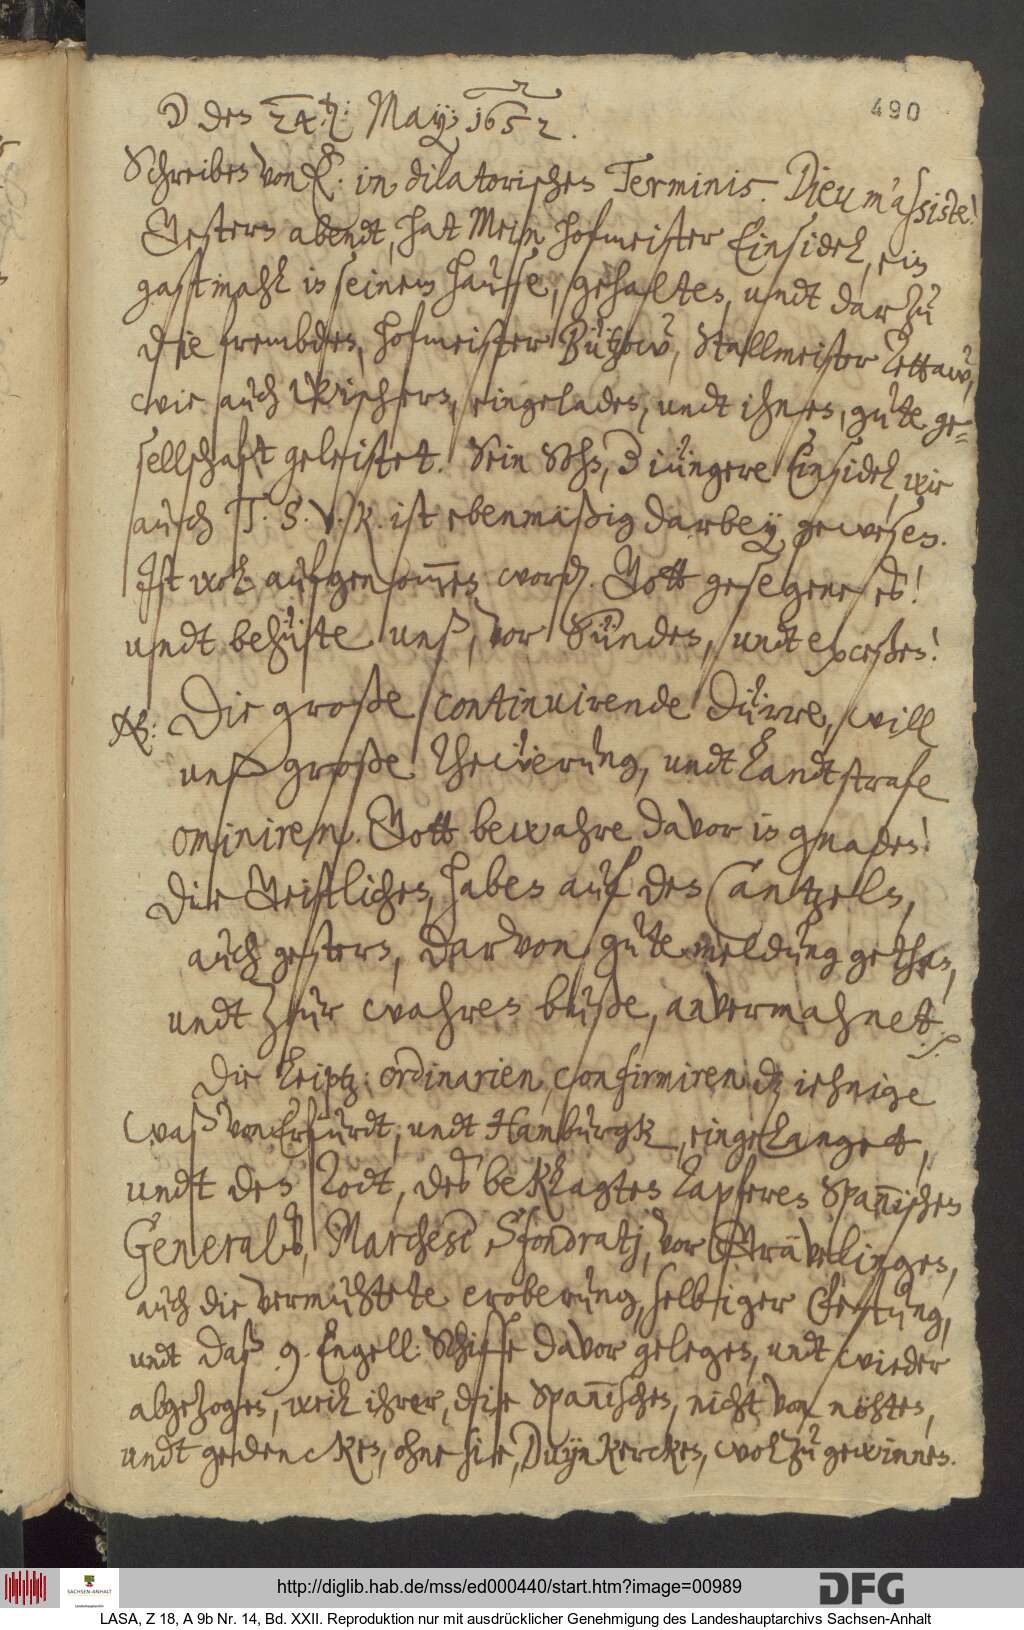 490
☽ den 24.ten: May: 1652.
Schreiben von E: in dilatorischen Terminis. Dieu m'assiste!
Gestern abendt, hat Mein hofmeister Einsidel, ein
gastmahl in seinem hause, gehalten, undt darzu
die frembden, hofmeister Bützow, Stallmeister Lettaw,
wie auch Wischern, eingeladen, undt ihnen, gute ge=
sellschaft geleistet. Sein Sohn, d iüngere Einsidel, wie
auch T. S. V. K. ist ebenmäßig darbey gewesen.
Ist wol aufgenommen worden. Gott gesegene es!
undt behüte unß, vor Sünden, undt exceßen!
NB: Die große continuirende dürre, will
unß große Thewerung, undt Landtstrafe
ominiren. Gott bewahre davor in gnaden!
Die Geistlichen, haben auf den Cantzeln,
auch gestern, darvon gute meldung gethan,
undt zur wahren buße, anvermahnet.
Die Leiptz: ordinarien confirmiren dz iehnige
waß von Erfurdt, undt Hamburgk, eingelanget,
undt den Todt, des beklagten Tapferen Spannischen
Generals, Marchese Sfondratj, vor Grävelingen,
auch die vermuhtete eroberung, selbiger Festung,
undt daß 9. Engell: Schiffe davor gelegen, undt wieder
abgezogen, weil ihrer, die Spannischen, nicht von nöhten,
undt gedencken, ohne sie, Duynkercken, wol zu gewinnen.
http://diglib.hab.de/mss/ed000440/start.htm?image=00989
SACHSEN-ANHALT
DFG
LASA, Z 18, A 9b Nr. 14, Bd. XXII. Reproduktion nur mit ausdrücklicher Genehmigung des Landeshauptarchivs Sachsen-Anhalt